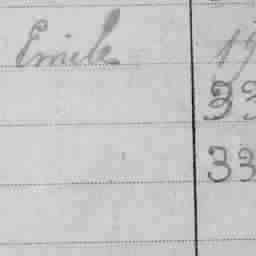 Emile 19
33
33